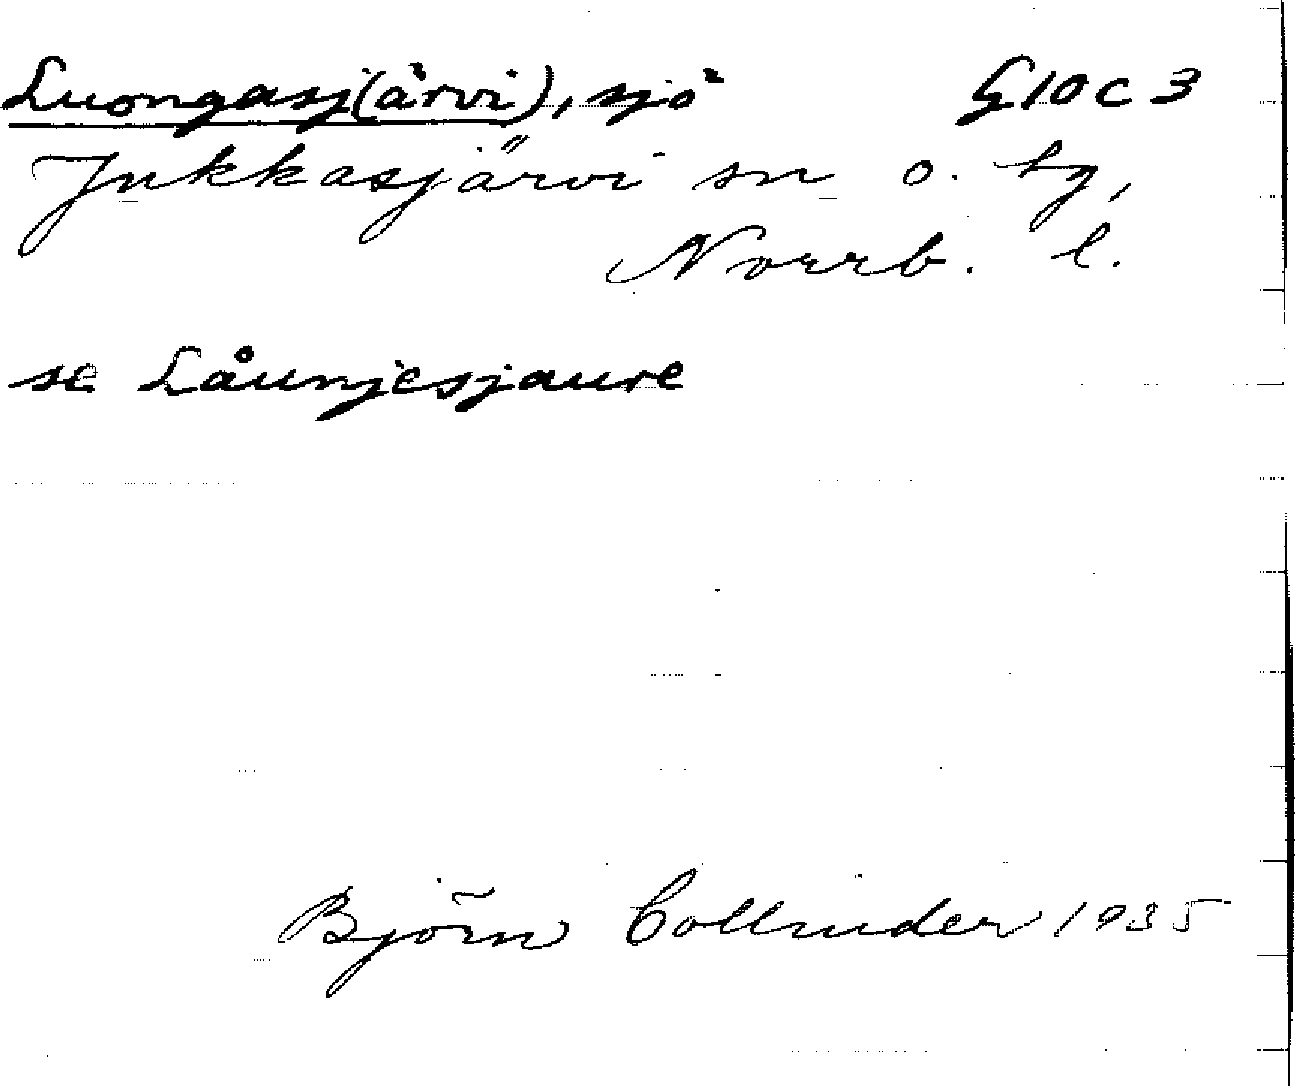 Luongasj(ärvi), sjö G10c3
Jukkasjärvi sn o. tg,
Norrb. l.
se Låunjesjaure
Björn Collinder 1935